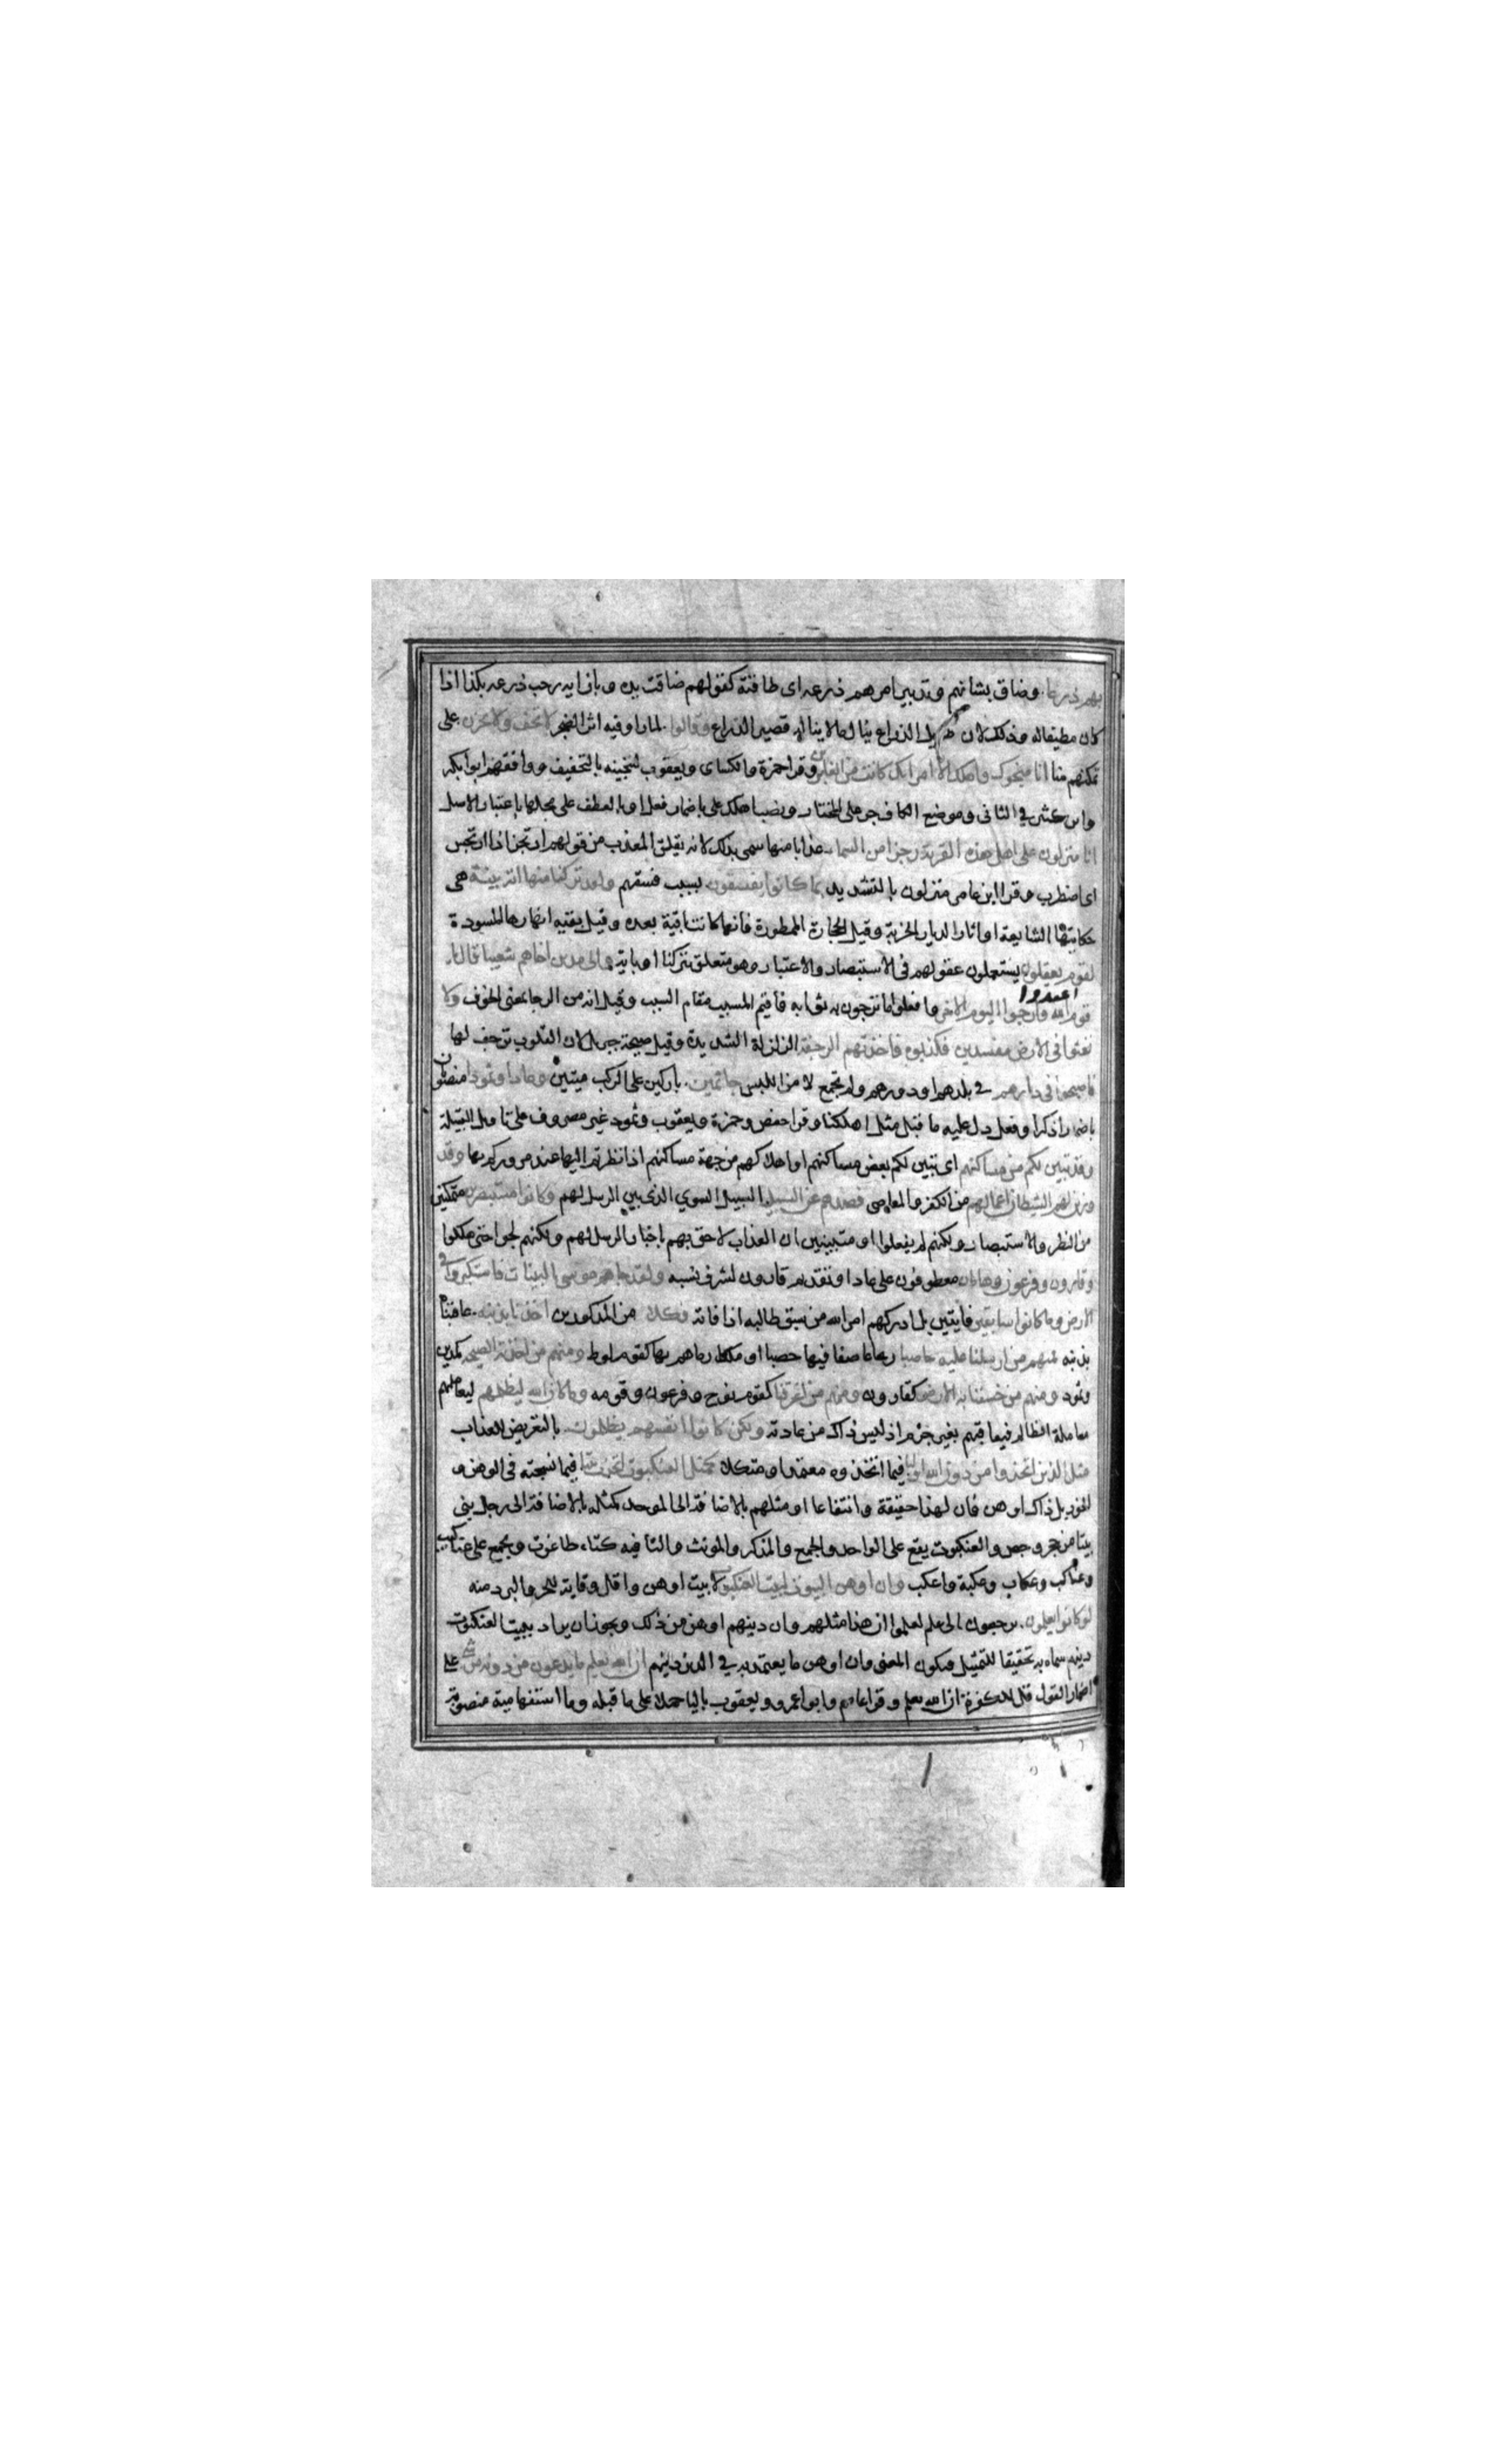 بهم ذرعا وضاق بشانهم وتدبير امرهم ذرعه اى طاقته كقولهم ضاقت يده وبازايه رحب ذرعه بكذا اذا
كان مطيقاله وذلك لان طويل الذراع ينال مالا يناله قصير الذراع وقالوا لما راوفيه اثر الضجر لا تخف ولا تحزن على
تمكنهم منا انا منجوك واهلك الا امراتك كانت من الغابرين وقرا حمزة والكساى ويعقوب لننجينه بالتخفيف ووافقهم ابوا بكر
وابن كثير في الثانى وموضع الكاف جر على المختار ونصب اهلك على باضمار فعل او بالعطف على محلها باعتبار الاصل
انا منزلون على اهل هذه القرية رجزا من السماء عذابا منها سمى بذلك لانه يقلق المعذب من قولهم ارتجز اذا ارتجس
اى اضطرب وقرا ابن عامر منزلون بالتشديد بما كانوا يفسقون بسبب فسقهم ولقد تركنا منها اية بينة هى
حكايتها الشايعة او اثار الديار الخربة وقيل الحجارة الممطورة فانها كانت باقية بعده وقيل بقيه انهارها المسودة
لقوم يعقلون يستعملون عقولهم فى الاستبصار والاعتبار وهو متعلق بتركنا او باية والى مدين اخاهم شعيبا فقال يا
قوم اعبدوا الله وارجوا اليوم الاخر وافعلوا ما ترجون به ثوابه فاقيم المسبب مقام السبب وقيل انه من الرجا بمعنى الخوف ولا
تعثوا فى الارض مفسدين فكذبوه فاخذتهم الرجفة الزلزلة الشديدة وقيل صيحة جبريل لان القلوب ترجف لها
فاصبحوا فى دارهم في بلدهم او دورهم ولم يجمع لامن اللبس جاثمين باركين على الركب ميتين وعادا وثمودا منصوبان
باضمار اذكر او فعل دل عليه ما قبل مثل اهلكنا وقرا حفص وحمزة ويعقوب وثمود غير مصروف على تاويل القبيلة
وقد تبين لكم من مساكنهم اى تبين لكم بعض مساكنهم او اهلاكهم من جهة مساكنهم اذا نظرتم اليها عند مروركم بها وقد
وزين لهم الشيطان اعمالهم من الكفر والمعاصى فصدهم عن السبيل السبيل السوي الذى بين الرسل لهم وكانوا مستبصرين متمكنين
من النظر والاستبصار ولكنهم لم يفعلوا او متبينين ان العذاب لاحق بهم باخبار الرسل لهم ولكنهم لجوا حتى هلكوا
وقارون وفرعون وهامان معطوفون على عادا وتقديم قارون لشرف نسبه ولقد جاهم موسى بالبينات فاستكبروا فى
الارض وما كانوا سابقين فايتين بل ادركهم امر الله من سبق طالبه اذا فاته فكلا من المذكورين اخذنا بذنبه عاقبناه
بذنبه فمنهم من ارسلنا عليه حاصبا ريحا عاصفا فيها حصبا او ملكا رماهم بها كقوم لوط ومنهم من اخذته الصيحة كمدين
وثمود ومنهم من خسفنا به الارض كقارون ومنهم من اغرقنا كقوم نوح وفرعون وقومه وما كان الله ليظلمهم ليعاملهم
معاملة الظالم فيعاقبهم بغير جرم اذ ليس ذاك من عادته ولكن كانوا انفسهم يظلمون بالتعريض للعذاب
مثل الذين اتخذوا من دون الله اوليا فيما اتخذوه معتمدا ومتكلا كمثل العنكبوت اتخذت بيتا فيما نسجته فى الوهن و
الخور بل ذاك اوهن فان لهذا حقيقة وانتفاعا او مثلهم بالاضافة الى الموحد كمثله بالاضافة الى رجل بنى
بيتا من حجر وجص والعنكبوت يقع على الواحد والجمع والمذكر والمونث والتا فيه كتاء طاغوت ويجمع على عناكيب
وعناكب وعكاب وعكبة واعكب وان اوهن البيوت لبيت العنكبوت لا بيت اوهن واقل وقاية للحر والبرد منه
لو كانوا يعلمون يرجعون الى علم لعلموا ان هذا مثلهم وان دينهم اوهن من ذلك ويجوز ان يراد ببيت العنكبوت
دينهم سماه به تحقيقا للتمثيل فيكون المعنى وان اوهن ما يعتمد به في الدين دينهم ان الله يعلم ما يدعون من دونه من شي على
اضمار القول قل للكفرة ان الله يعلم وقرا عاصم وابوا عمرو ويعقوب باليا حملا على ما قبله وما استفهامية منصوبة